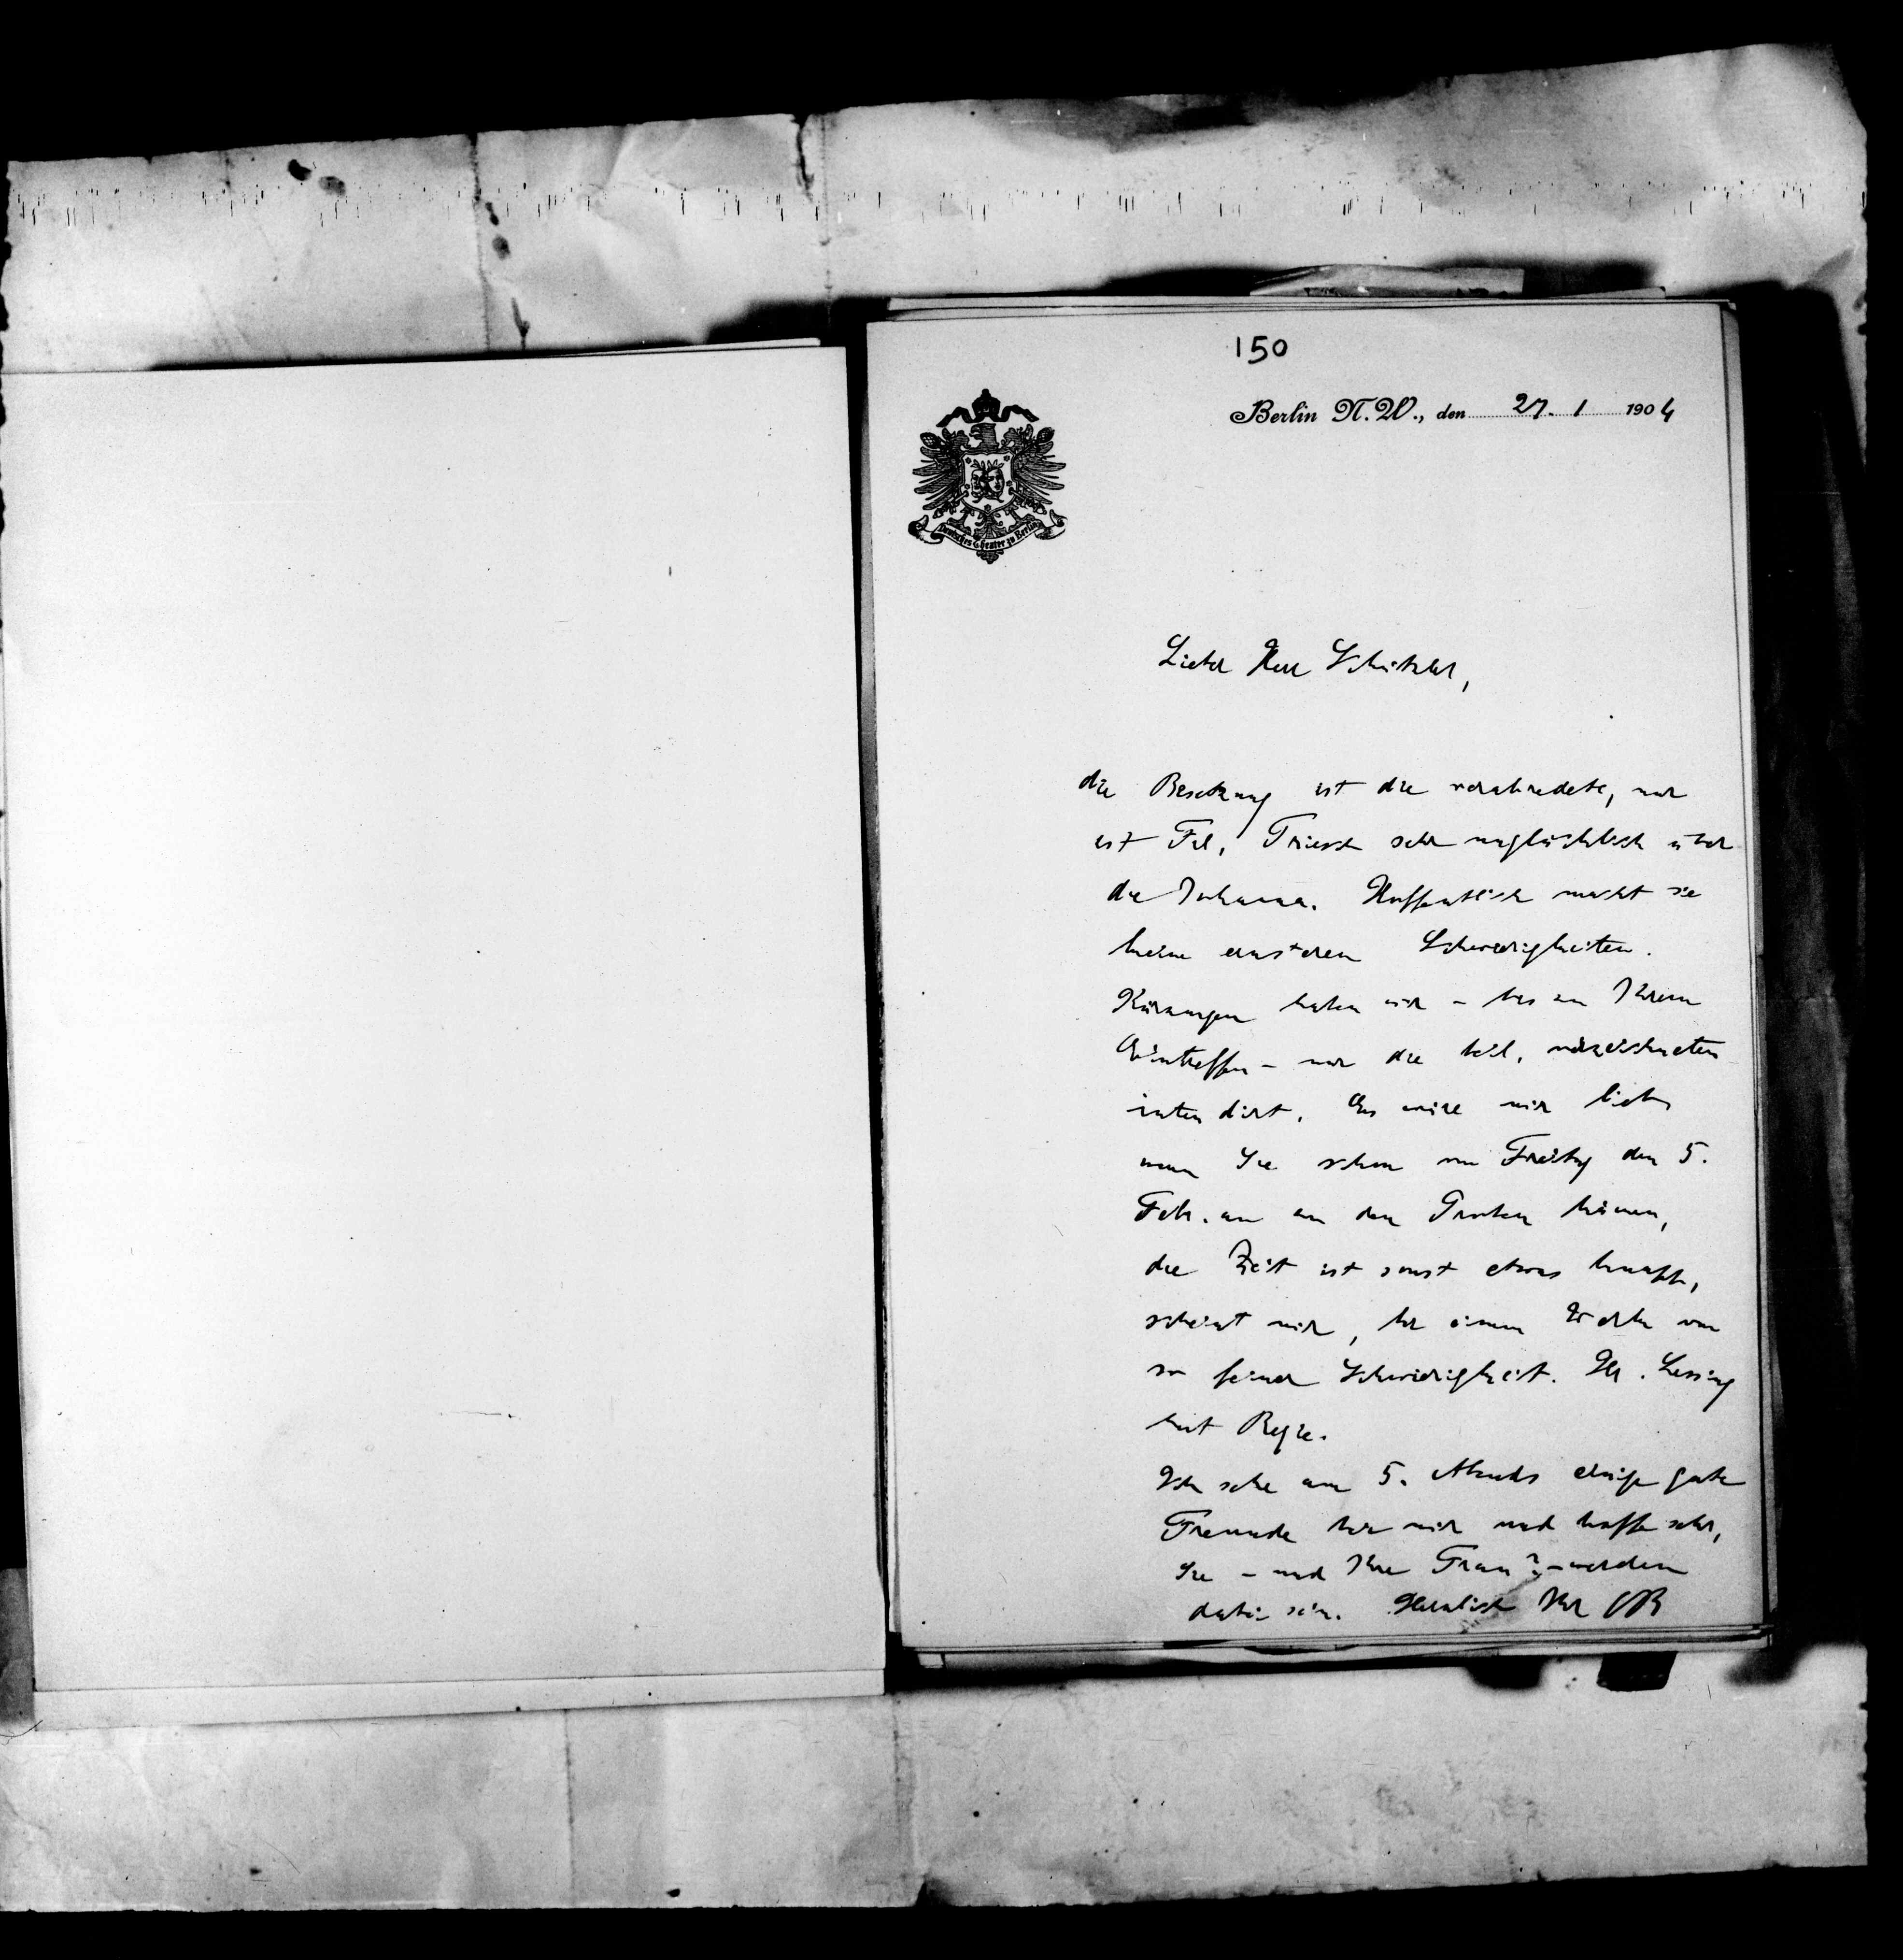 150
Berlin N. W., den 27. 1 1904
Deutsches Theater zu Berlin
Lieber Herr Schnitzler,
die Besetzung ist die verabredete, nur
ist Frl. Triesch sehr unglücklich über
die Johanna. Hoffentlich macht sie
keine ernsteren Schwierigkeiten.
Kürzungen haben wir – bis zu Ihrem
Eintreffen – nur die beil. verzeichneten
intendirt. Es wäre mir lieb,
wenn Sie schon von Freitag den 5.
Feb. an zu den Proben kämen,
die Zeit ist sonst etwas knapp,
scheint mir, bei einem Werke von
so feiner Schwierigkeit. Hr. Lessing
hat Regie.
Ich sehe am 5. Abends einige gute
Freunde bei mir und hoffe sehr,
Sie – und Ihre Frau? – werden
dabei sein. Herzlich Ihr OB